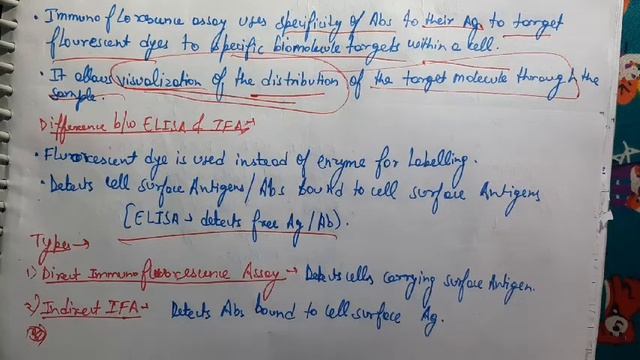 • Immunoflorosunce assay uses specificity of Abs to their Ag to target
flourescent dyes to specific biomolecule targets within a cell.
• It allows visualization of the distribution of the target molecule through the
sample.
Difference b/w ELISA & IFA→
• Fluorescent dye is used instead of enzyme for Labelling.
• Detects cell surface Antigens/Abs bound to cell surface Antigens
[ELISA → detects free Ag/Ab).
Types→
1) Direct Immunofluorescence Assay → Detects cells carrying surface Antigen.
2) Indirect IFA→ Detects Abs bound to cell surface Ag.